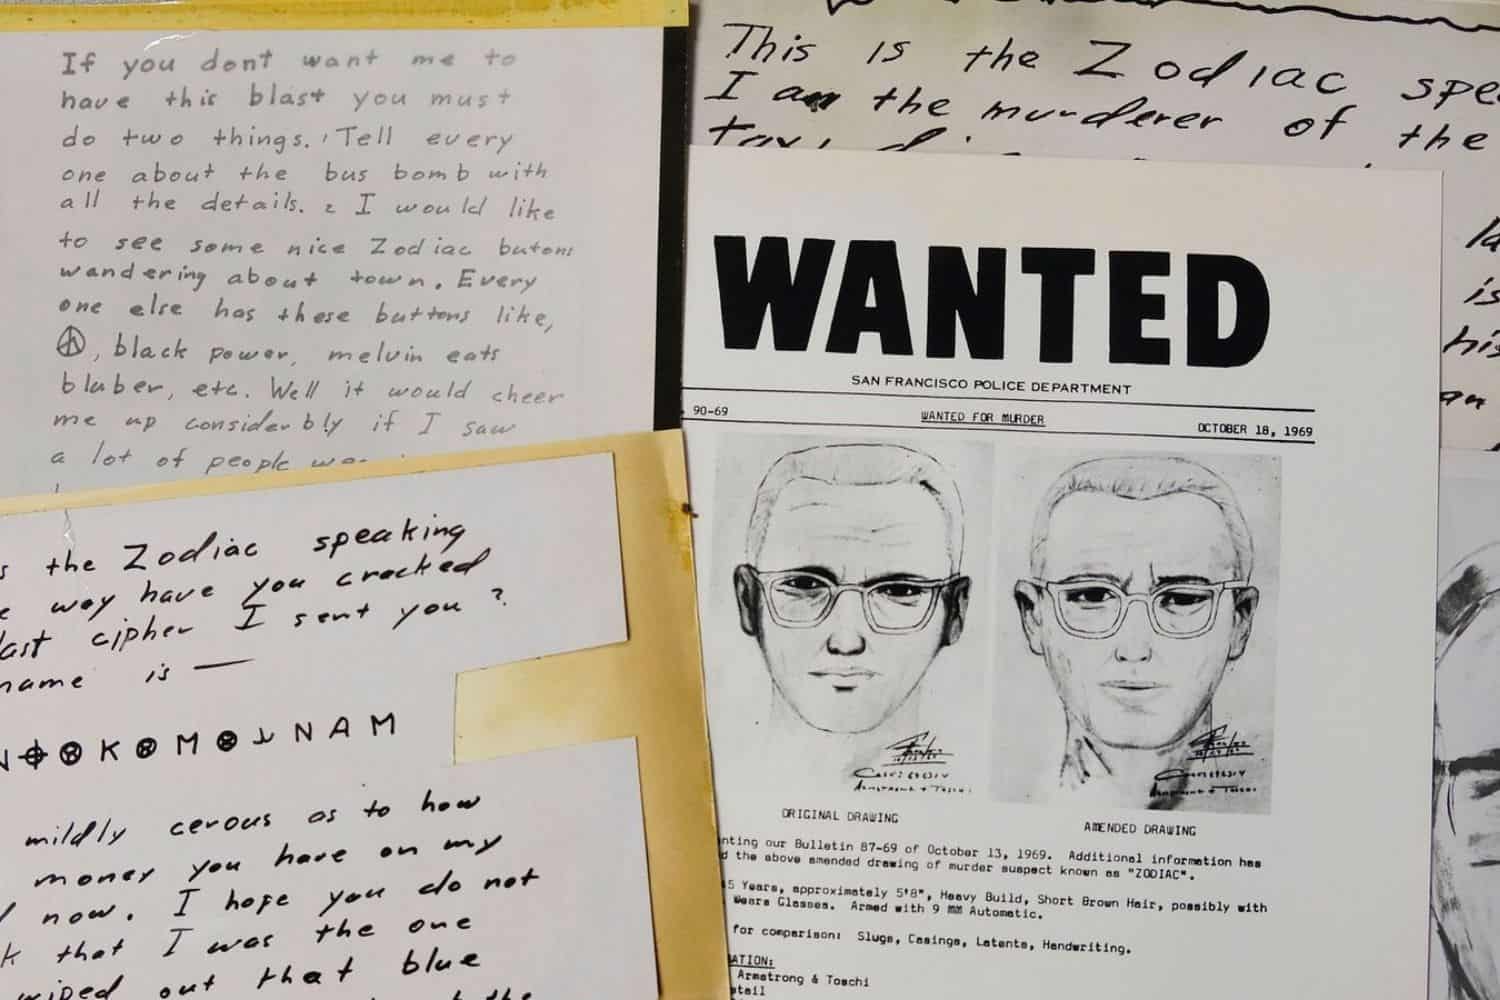 If you dont want me to
have this blast you must
do two things. 1 Tell every
one about the bus bomb with
all the details. 2 I would like
to see some nice Zodiac butons
wandering about town. Every
one else has these buttons like,
, black power, melvin eats
bluber, etc. Well it would cheer
me up considerbly if I saw
a lot of people
This is the Zodiac spe
I am the murderer of the
la
is
his
an
s the Zodiac speaking
e way have you cracked
last cipher I sent you ?
name is —
K M N A M
mildly cerous as to how
money you have on my
now. I hope you do not
k that I was the one
wiped out that blue
WANTED
SAN FRANCISCO POLICE DEPARTMENT
90-69 WANTED FOR MURDER OCTOBER 18, 1969
ORIGINAL DRAWING AMENDED DRAWING
nting our Bulletin 87-69 of October 13, 1969. Additional information has
d the above amended drawing of murder suspect known as "ZODIAC".
5 Years, approximately 5'8", Heavy Build, Short Brown Hair, possibly with
Wears Glasses. Armed with 9 MM Automatic.
for comparison: Slugs, Casings, Latents, Handwriting.
ATION:
Armstrong & Toschi
etail